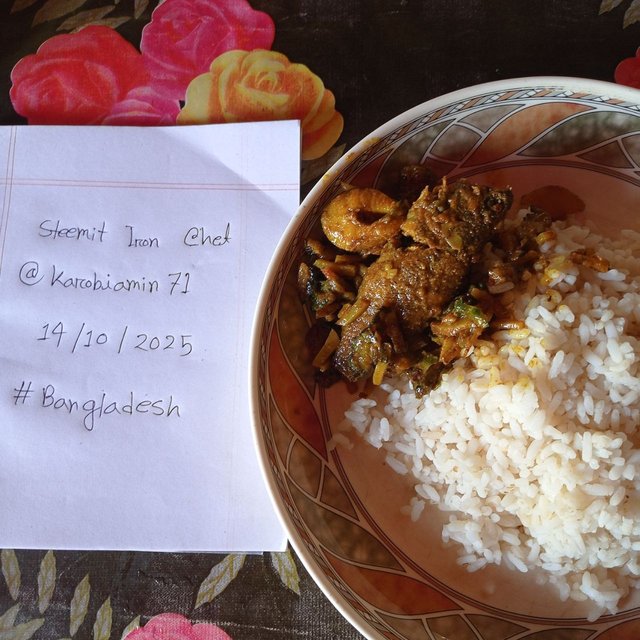 Steemit Iron Chef
@ Karobiamin 71
14/10/2025
#Bangladesh